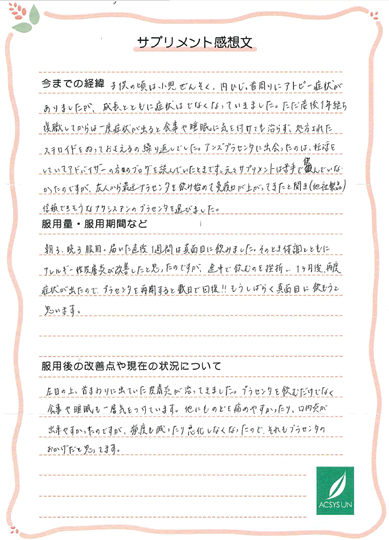 サプリメント感想文
今までの経緯 子供の頃は小児ぜんそく、内ひじ、首周りにアトピー症状が
ありましたが、成長とともに症状はでなくなっていきました。ただ産後1年経ち
復職してからは一度症状が出ると食事や睡眠に気を付けても治らず、処方された
ステロイドをぬっておさえるの繰り返しでした。アンズプラセンタに出会ったのは、
していてアドバイザーの方のブログを読んでいたときです。元々サプリメントは苦手で飲んでいな
かったのですが、友人から最近プラセンタを飲み始めて免疫が上がってきたと聞き(他社製品)
信頼できそうなアクシスアンのプラセンタを選びました。
服用量・服用期間など
朝3、晩3服用。届いた直後1週間は真面目に飲みました。そのとき体調とともに
アレルギー性皮膚炎が改善したと思ったのですが、途中で飲むのを挫折…1ヶ月後、再度
症状が出たので、プラセンタを再開すると数日で回復!!もうしばらく真面目に飲もうと
思います。
服用後の改善点や現在の状況について
左目の上、首まわりに出ていた皮膚炎が治ってきました。プラセンタを飲むだけでなく
食事や睡眠も一層気をつけています。他にものどを痛めやすかったり、口内炎が
出来やすかったのですが、頻度も減ったり悪化しなくなったので、それもプラセンタの
おかげだと思ってます。
ACSYSUN